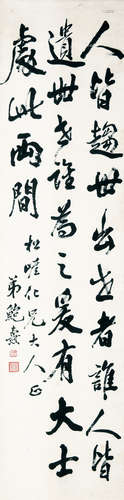 人皆趨世出世者誰人皆
遺世世誰為之爰有大士
處此兩間
松崖仁兄大人正
弟鮑薰